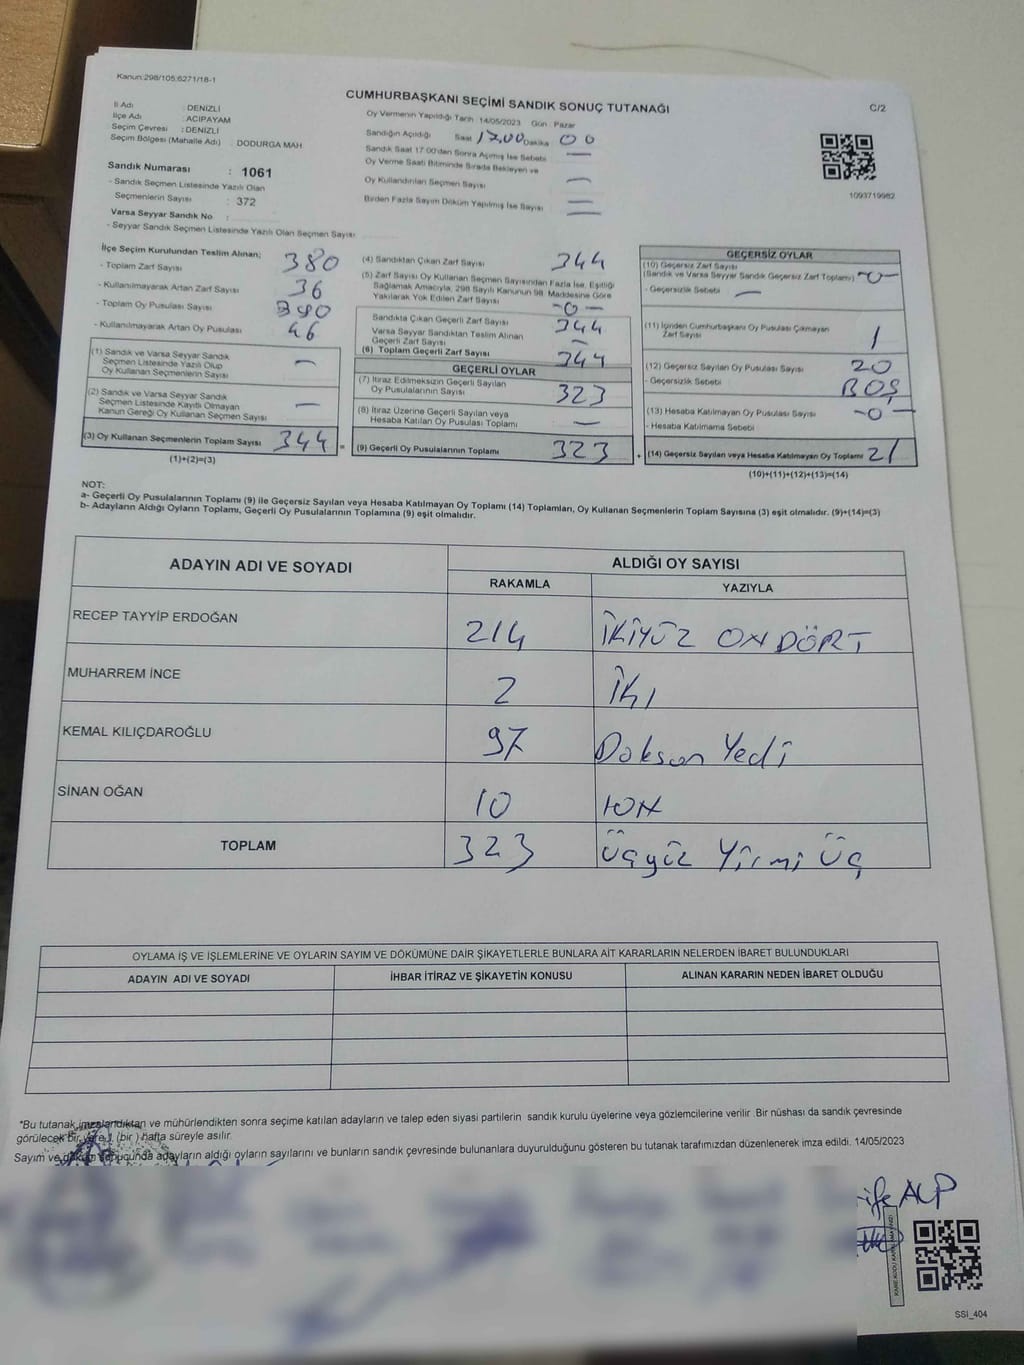 Kanun:298/105,6271/18-1
CUMHURBAŞKANI SEÇİMİ SANDIK SONUÇ TUTANAĞI
C/2
İl Adı : DENİZLİ
İlçe Adı : ACIPAYAM
Seçim Çevresi : DENİZLİ
Seçim Bölgesi (Mahalle Adı) : DODURGA MAH.
Oy Vermenin Yapıldığı Tarih : 14/05/2023 Gün : Pazar
Sandığın Açıldığı Saat 17.00 Dakika 00
Sandık Saat 17:00'den Sonra Açılmış İse Sebebi —
Oy Verme Saati Bitiminde Sırada Bekleyen ve
Oy Kullandırılan Seçmen Sayısı —
Birden Fazla Sayım Döküm Yapılmış İse Sayısı
1093719962
Sandık Numarası : 1061
- Sandık Seçmen Listesinde Yazılı Olan
Seçmenlerin Sayısı : 372
Varsa Seyyar Sandık No :
- Seyyar Sandık Seçmen Listesinde Yazılı Olan Seçmen Sayısı
İlçe Seçim Kurulundan Teslim Alınan;
- Toplam Zarf Sayısı 380
- Kullanılmayarak Artan Zarf Sayısı 36
- Toplam Oy Pusulası Sayısı 380
- Kullanılmayarak Artan Oy Pusulası
(1) Sandık ve Varsa Seyyar Sandık
Seçmen Listesinde Yazılı Olup
Oy Kullanan Seçmenlerin Sayısı —
(2) Sandık ve Varsa Seyyar Sandık
Seçmen Listesinde Kayıtlı Olmayan
Kanun Gereği Oy Kullanan Seçmen Sayısı —
(3) Oy Kullanan Seçmenlerin Toplam Sayısı 344 =
(1)+(2)=(3)
(4) Sandıktan Çıkan Zarf Sayısı 344
(5) Zarf Sayısı Oy Kullanan Seçmen Sayısından Fazla İse, Eşitliği
Sağlamak Amacıyla, 298 Sayılı Kanunun 98. Maddesine Göre
Yakılarak Yok Edilen Zarf Sayısı -0-
Sandıkta Çıkan Geçerli Zarf Sayısı 344
Varsa Seyyar Sandıktan Teslim Alınan
Geçerli Zarf Sayısı —
(6) Toplam Geçerli Zarf Sayısı 344
GEÇERLİ OYLAR
(7) İtiraz Edilmeksizin Geçerli Sayılan
Oy Pusulalarının Sayısı 323
(8) İtiraz Üzerine Geçerli Sayılan veya
Hesaba Katılan Oy Pusulası Toplamı —
(9) Geçerli Oy Pusulalarının Toplamı 323 +
GEÇERSİZ OYLAR
(10) Geçersiz Zarf Sayısı
(Sandık ve Varsa Seyyar Sandık Geçersiz Zarf Toplamı) -0-
- Geçersizlik Sebebi —
(11) İçinden Cumhurbaşkanı Oy Pusulası Çıkmayan
Zarf Sayısı 1
(12) Geçersiz Sayılan Oy Pusulası Sayısı 20
- Geçersizlik Sebebi BOŞ
(13) Hesaba Katılmayan Oy Pusulası Sayısı -0-
- Hesaba Katılmama Sebebi
(14) Geçersiz Sayılan veya Hesaba Katılmayan Oy Toplamı 21
(10)+(11)+(12)+(13)=(14)
NOT:
a- Geçerli Oy Pusulalarının Toplamı (9) ile Geçersiz Sayılan veya Hesaba Katılmayan Oy Toplamı (14) Toplamları, Oy Kullanan Seçmenlerin Toplam Sayısına (3) eşit olmalıdır. (9)+(14)=(3)
b- Adayların Aldığı Oyların Toplamı, Geçerli Oy Pusulalarının Toplamına (9) eşit olmalıdır.
ADAYIN ADI VE SOYADI
ALDIĞI OY SAYISI
RAKAMLA YAZIYLA
RECEP TAYYİP ERDOĞAN 214 İKİYÜZ ON DÖRT
MUHARREM İNCE 2 İKİ
KEMAL KILIÇDAROĞLU 97 Doksan Yedi
SİNAN OĞAN 10 ON
TOPLAM 323 Üçyüz Yirmi Üç
OYLAMA İŞ VE İŞLEMLERİNE VE OYLARIN SAYIM VE DÖKÜMÜNE DAİR ŞİKAYETLERLE BUNLARA AİT KARARLARIN NELERDEN İBARET BULUNDUKLARI
ADAYIN ADI VE SOYADI İHBAR İTİRAZ VE ŞİKAYETİN KONUSU ALINAN KARARIN NEDEN İBARET OLDUĞU
*Bu tutanak imzalandıktan ve mühürlendikten sonra seçime katılan adayların ve talep eden siyasi partilerin sandık kurulu üyelerine veya gözlemcilerine verilir .Bir nüshası da sandık çevresinde
görülecek bir yere 1 (bir ) hafta süreyle asılır.
Sayım ve döküm sonucunda adayların aldığı oyların sayılarını ve bunların sandık çevresinde bulunanlara duyurulduğunu gösteren bu tutanak tarafımızdan düzenlenerek imza edildi. 14/05/2023
ALP
SSİ_404